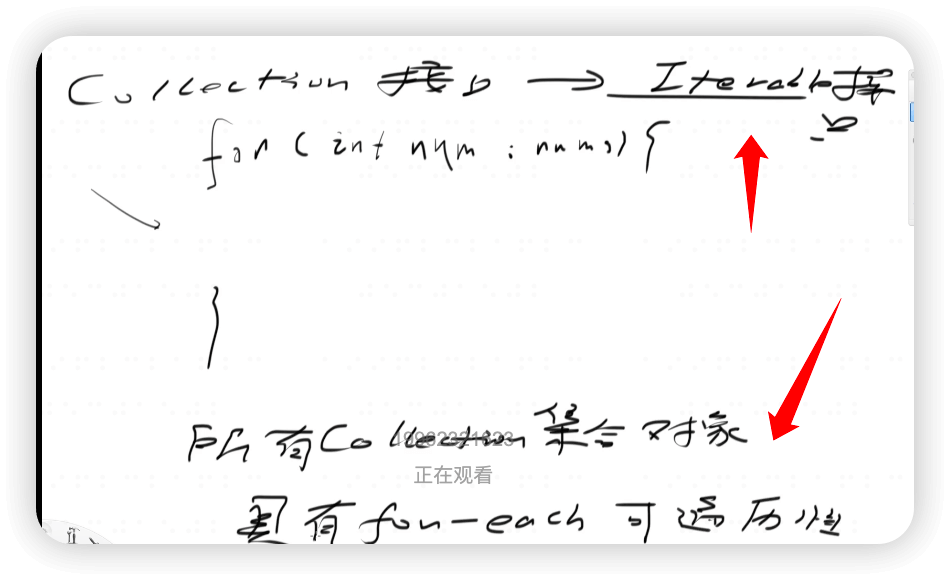 Collection 接口 → Iterable接
口
for ( int num : nums) {
}
所有Collection集合对象
正在观看
具有for-each 可遍历性